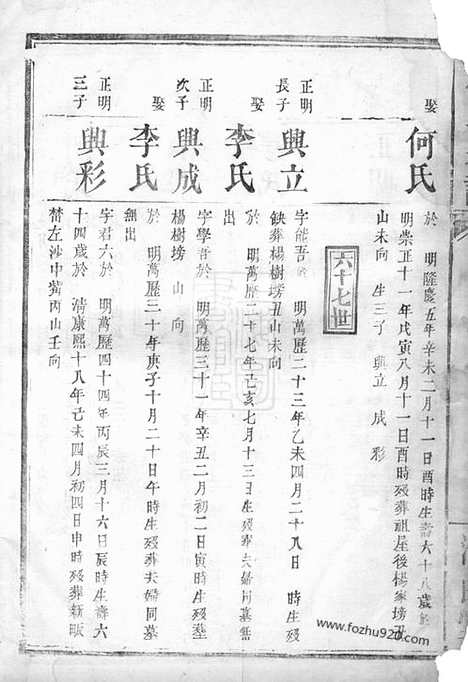 娶
何氏
於 明隆慶五年辛未二月十一日酉時生壽六十八歲於
明崇正十一年戊寅八月十一日酉時歿葬祖屋後楊家塝丑
山未向 生三子 興立 成 彩
六十七世
正明
長子
興立
字能吾 明萬歷二十三年乙未四月二十八日 時生歿
缺葬楊樹塝丑山未向
娶
李氏
於 明萬歷二十七年己亥七月十三日 生歿葬夫婦同墓無
出
正明
次子
興成
字學吾於 明萬歷三十一年辛丑二月初二日寅時生歿葬
楊樹塝 山 向
娶
李氏
於 明萬歷二十年庚子十月二十日午時生歿葬夫婦同墓
無出
正明
三子
興彩
字君六於 明萬歷四十四年丙辰三月十六日辰時生壽六
十四歲於 清康熙十八年己未四月初四日申時歿葬新販
禁左沙中嘴丙山壬向
www.fozhu920.com